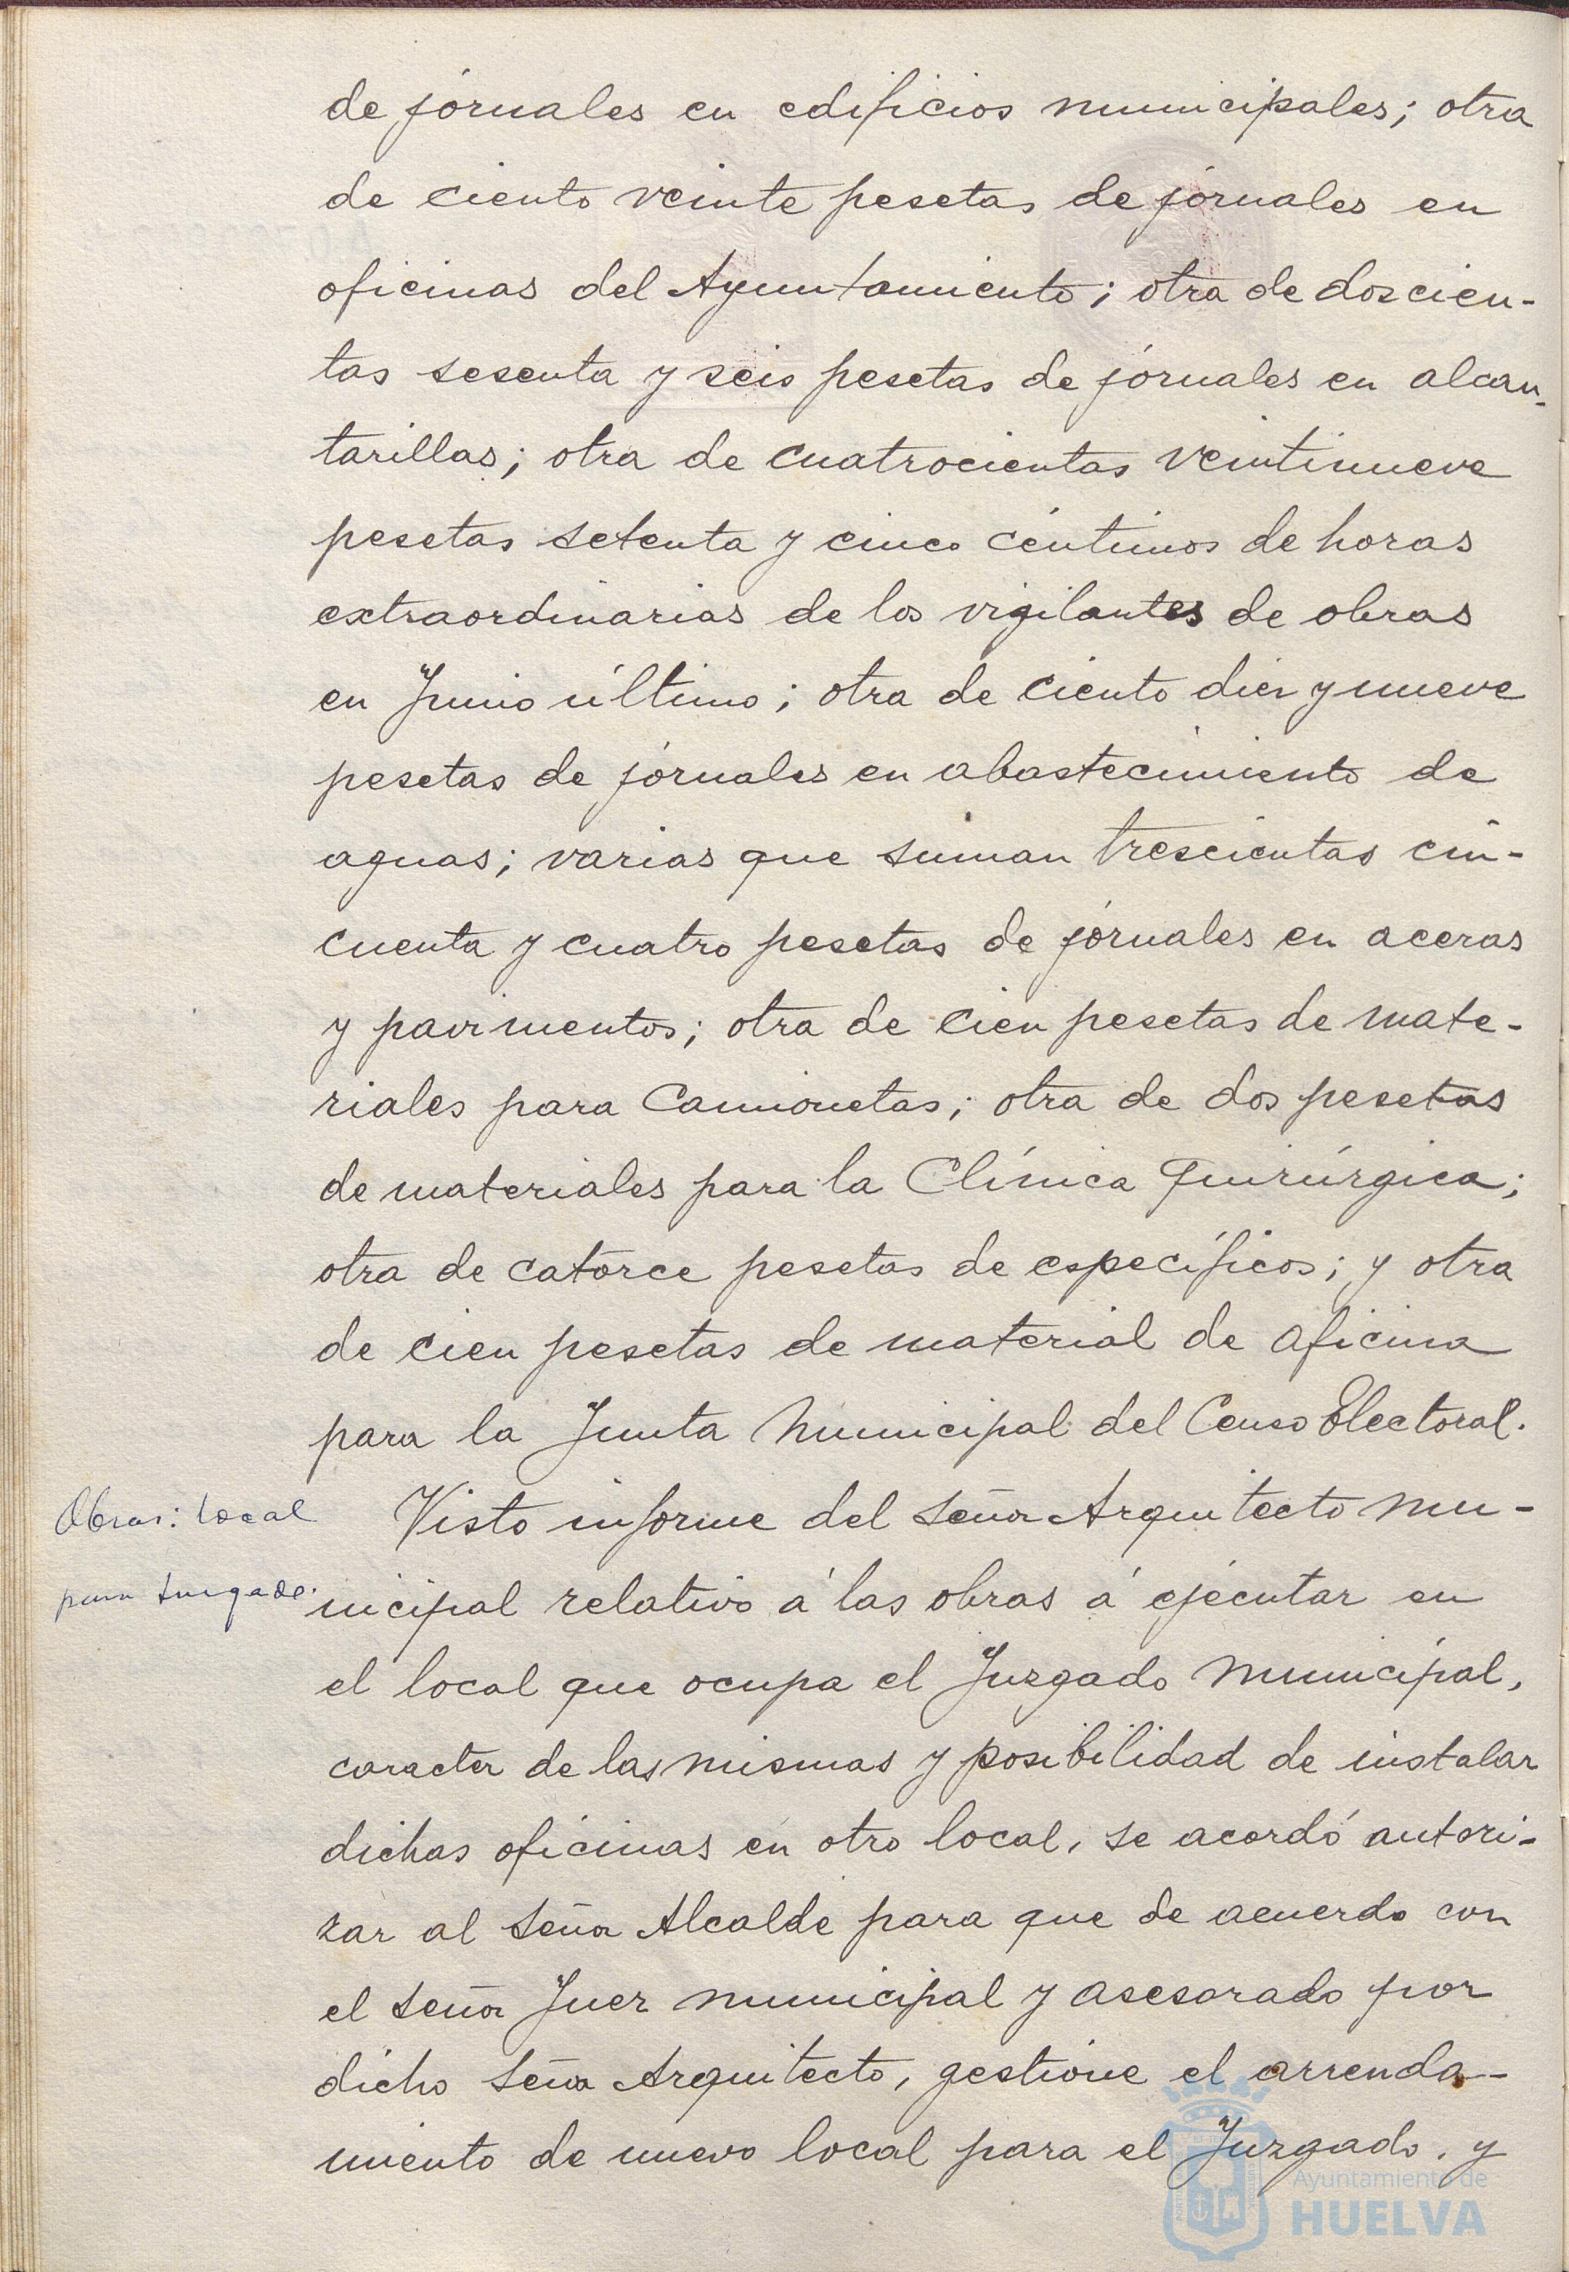 de jornales en edificios municipales; otra
de ciento veinte pesetas de jornales en
oficinas del Ayuntamiento; otra de doscien-
tas sesenta y seis pesetas de jornales en alcan-
tarillas; otra de cuatrocientas veintinueve
pesetas setenta y cinco céntimos de horas
extraordinarias de los vigilantes de obras
en Junio último; otra de ciento diez y nueve
pesetas de jornales en abastecimiento de
aguas; varias que suman trescientas cin-
cuenta y cuatro pesetas de jornales en aceras
y pavimentos; otra de cien pesetas de mate-
riales para Camionetas; otra de dos pesetas
de materiales para la Clínica Quirúrgica;
otra de catorce pesetas de específicos; y otra
de cien pesetas de material de oficina
para la Junta Municipal del Censo Electoral.
Obras: local
para Juzgado.
Visto informe del señor Arquitecto mu-
nicipal relativo á las obras á ejecutar en
el local que ocupa el Juzgado Municipal,
caracter de las mismas y posibilidad de instalar
dichas oficinas en otro local, se acordó autori-
zar al señor Alcalde para que de acuerdo con
el señor Juez municipal y asesorado por
dicho señor Arquitecto, gestione el arrenda-
miento de nuevo local para el Juzgado, y
Ayuntamiento de
HUELVA